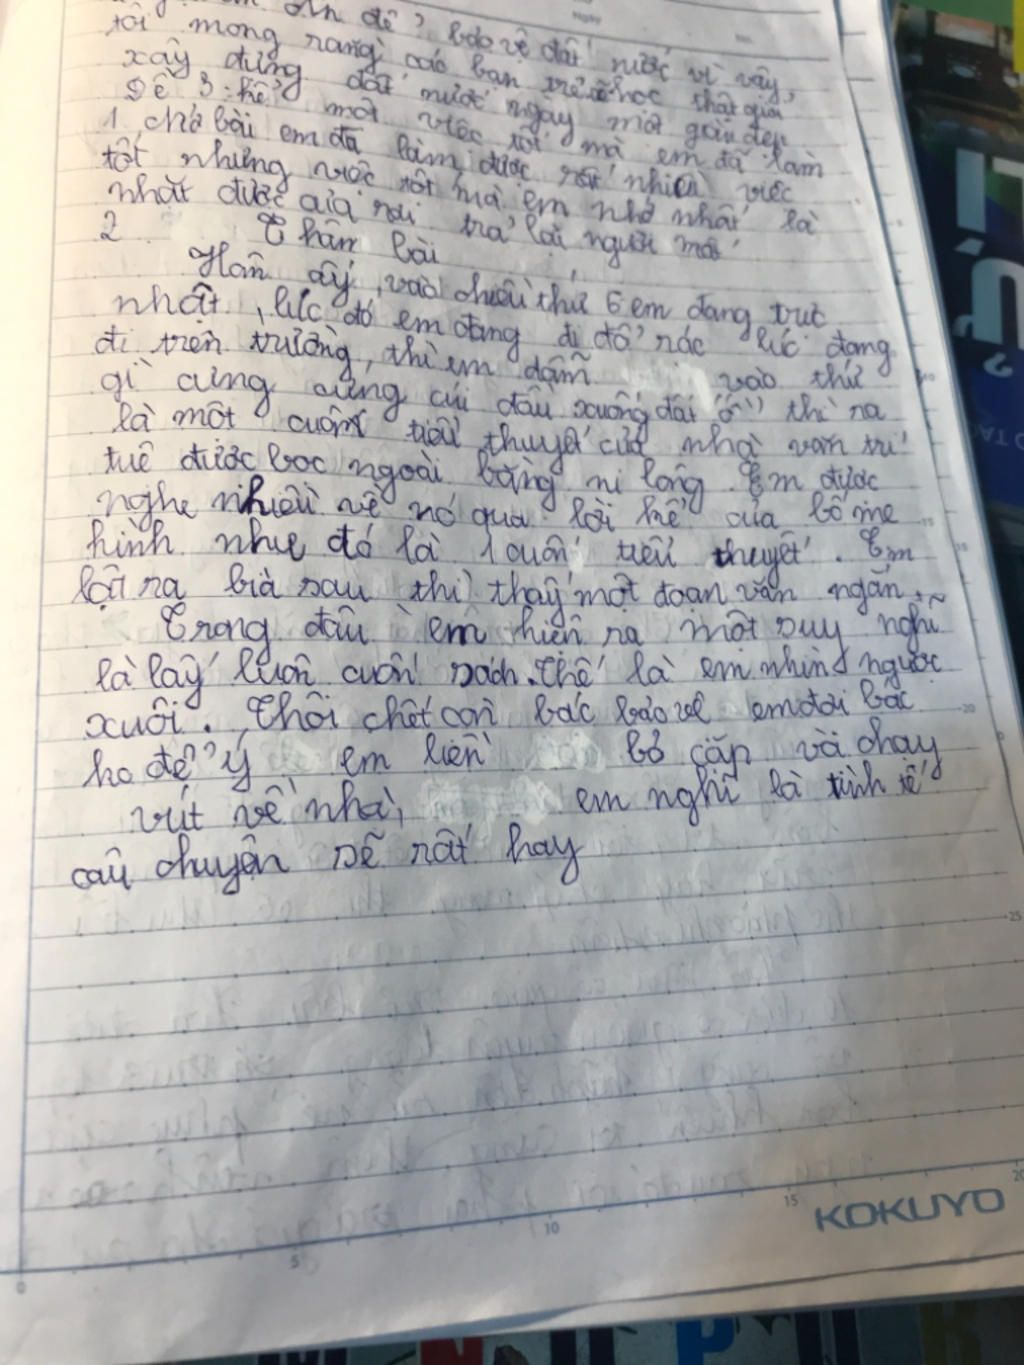 ôn để bảo vệ đất nước vì vậy,
tôi mong rằng các bạn trẻ sẽ học thật giỏi
xây dựng đất nước ngày một giàu đẹp
Đề 3: kể một việc tốt mà em đã làm
1 chở bài em đã làm được rất nhiều việc
tốt nhưng việc tốt mà em nhớ nhất là
nhặt được của rơi trả lại người mất
2 Thân bài
Hôm ấy, vào chiều thứ 6 em đang trực
nhật, lúc đó em đang đi đổ rác lúc đang
đi trên trường, thì em dẫm vào thứ
gì cưng cưng cúi đầu xuống đất "ồ" thì ra
là một cuốn tiểu thuyết của nhà van trí
tuê được boc ngoài bằng ni lông. Em được
nghe nhiều về nó qua lời kể của bố mẹ
hình như đó là 1 cuốn tiểu thuyết. Em
lật ra bìa sau thì thấy một đoạn văn ngắn.
Trong đầu em hiên ra một suy nghĩ
là lấy luôn cuốn sách. Thế là em nhìn ngược
xuôi. Thôi chết còn bác bảo vê em đơi bác
ho để ý em liền bỏ cặp và chạy
vút về nhà, em nghĩ là tình tế
câu chuyện sẽ rất hay
KOKUYO
5
10
15
20
25